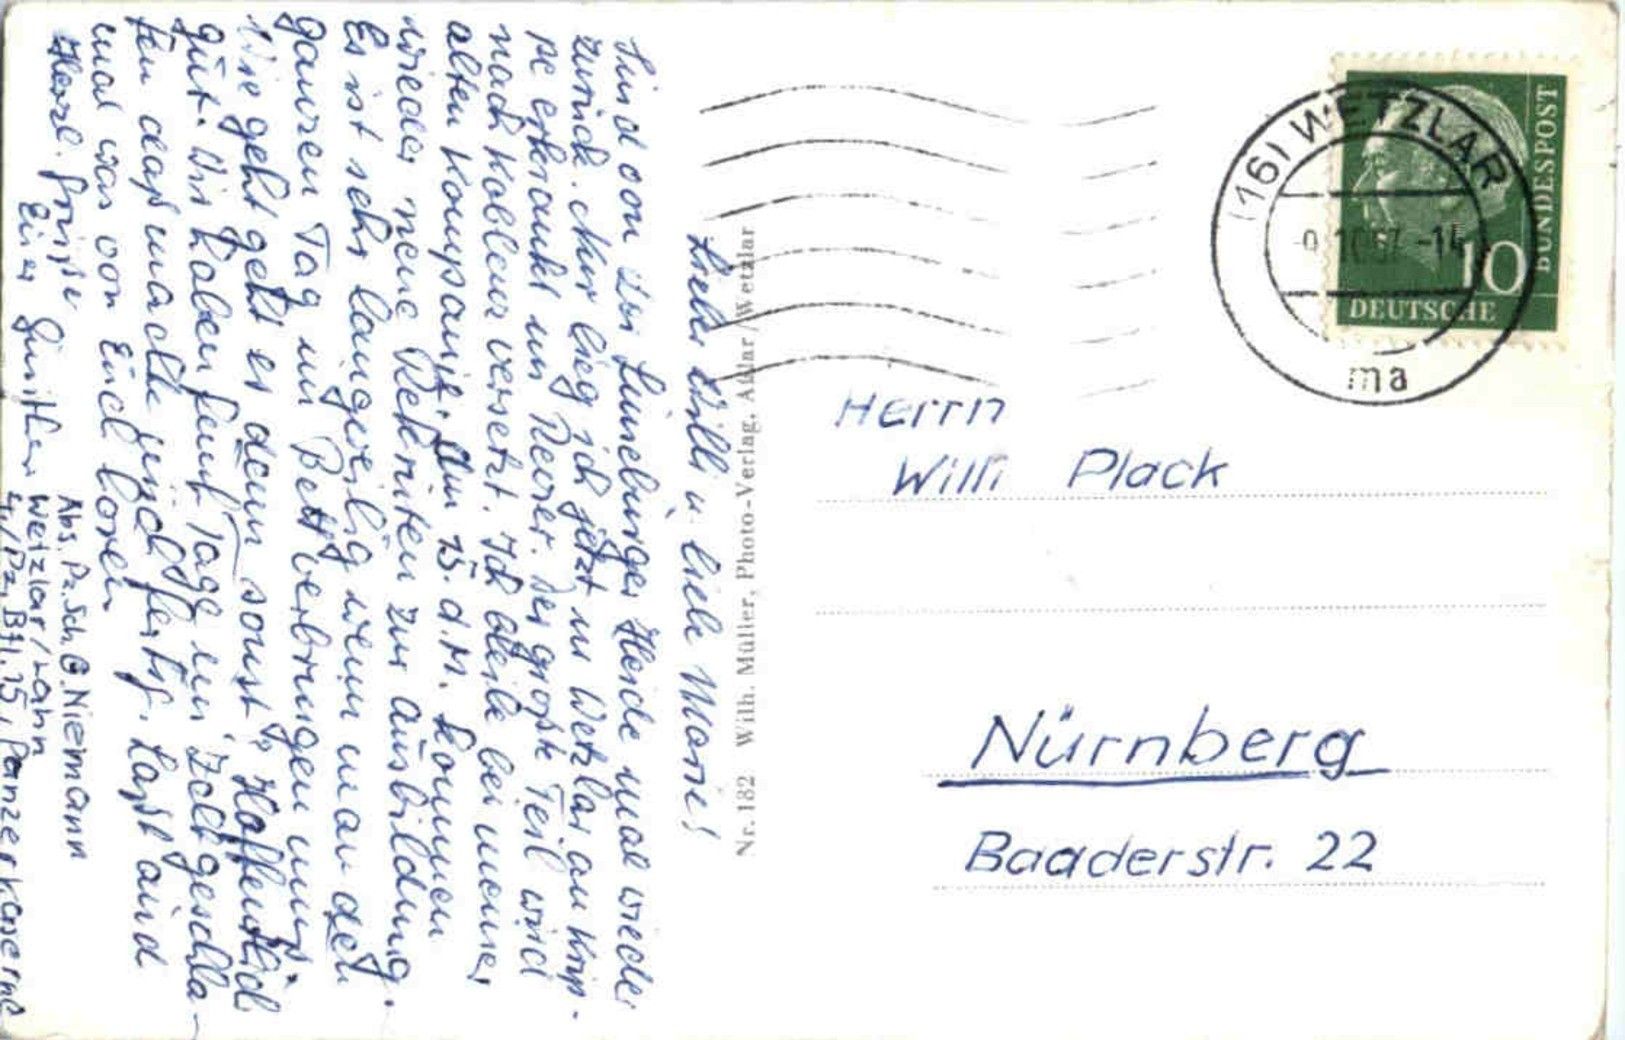 Lieber Willi u. liebe Marie!
Sind von der Lüneburger Heide mal wieder
zurück. Nur lieg ich jetzt in Wetzlar an Krip-
pe erkrankt im Revier. Der große Teil wird
nach Koblenz versetzt. Ich bleibe bei meiner
alten Kompanie. Am 15. d.M. kommen
wieder neue Rekruten zur Ausbildung.
Es ist sehr langweilig wenn man den
ganzen Tag im Bett verbringen muß.
Wie geht geht es denn sonst, Hoffentlich
gut. Wir haben fünf Tage im Zelt geschla-
fen das machte müde fertig. Laßt auch
mal was von Euch hören
Herzl. Grüße
Euer Günther
Abs. Pz. Sch. G. Niemann
Wetzlar/Lahn
4./Pz. Btl. 15, Panzerkaserne
Nr. 182 Wilh. Müller, Photo-Verlag, Aßlar/Wetzlar
(16) WETZLAR
10 57.-14
ma
10
DEUTSCHE
BUNDESPOST
Herrn
Willi Plack
Nürnberg
Baaderstr. 22